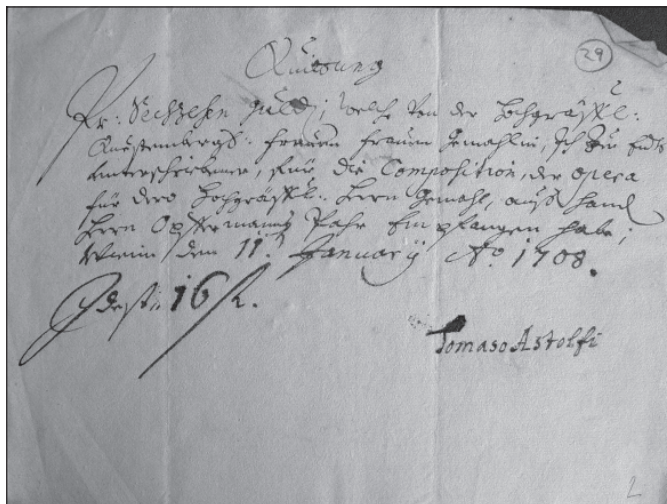 29
Quittung
Pr: Sechzehen guld; welche von der Hochgräffl:
Questenbergs: frauen frauen Gemahlin, Ich zu Endts
unterschribener, für die Composition, der opera
für dero Hochgräffl: Herrn Gemahl, auß Hand
Herrn Hoffermannß Pahr Empfangen habe;
Wienn den 11t January Ao 1708.
Id est 16 fl.
Tomaso Astolfi
2